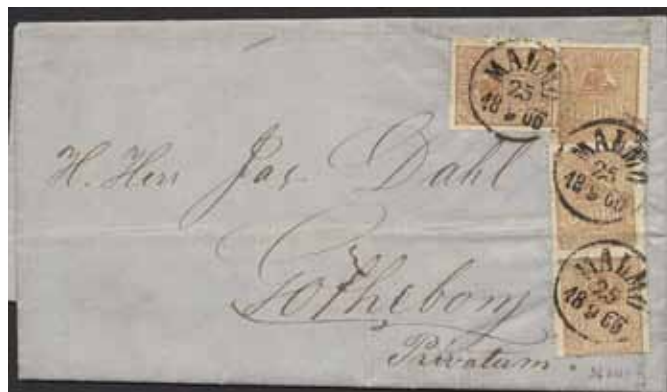 MALMÖ
25
18 9 66
MALMÖ
25
18 9 66
MALMÖ
25
18 9 66
H. Herr Jas. Dahl
Götheborg
Privatum.